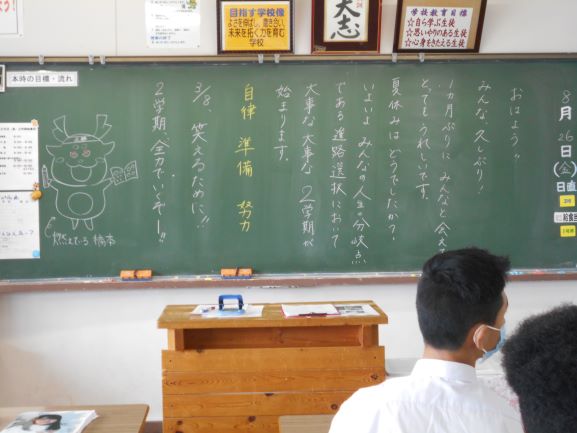 目指す学校像
よさを伸ばし、磨き合い
未来を拓く力を育む
学校
大志
学校教育目標
☆自ら学ぶ生徒
☆思いやりのある生徒
☆心身をきたえる生徒
本時の目標・流れ
8月26日(金)
日直
おはよう!!
みんな、久しぶり!
1カ月ぶりに、みんなと会えて
とってもうれしいです。
夏休みはどうでしたか?
いよいよ、みんなの人生の分岐点
である進路選択において
大事な大事な2学期が
始まります。
自律 準備 努力
3/8、笑えるために!!
2学期、全力でいくぞー!!
燃えている橋本
給食当